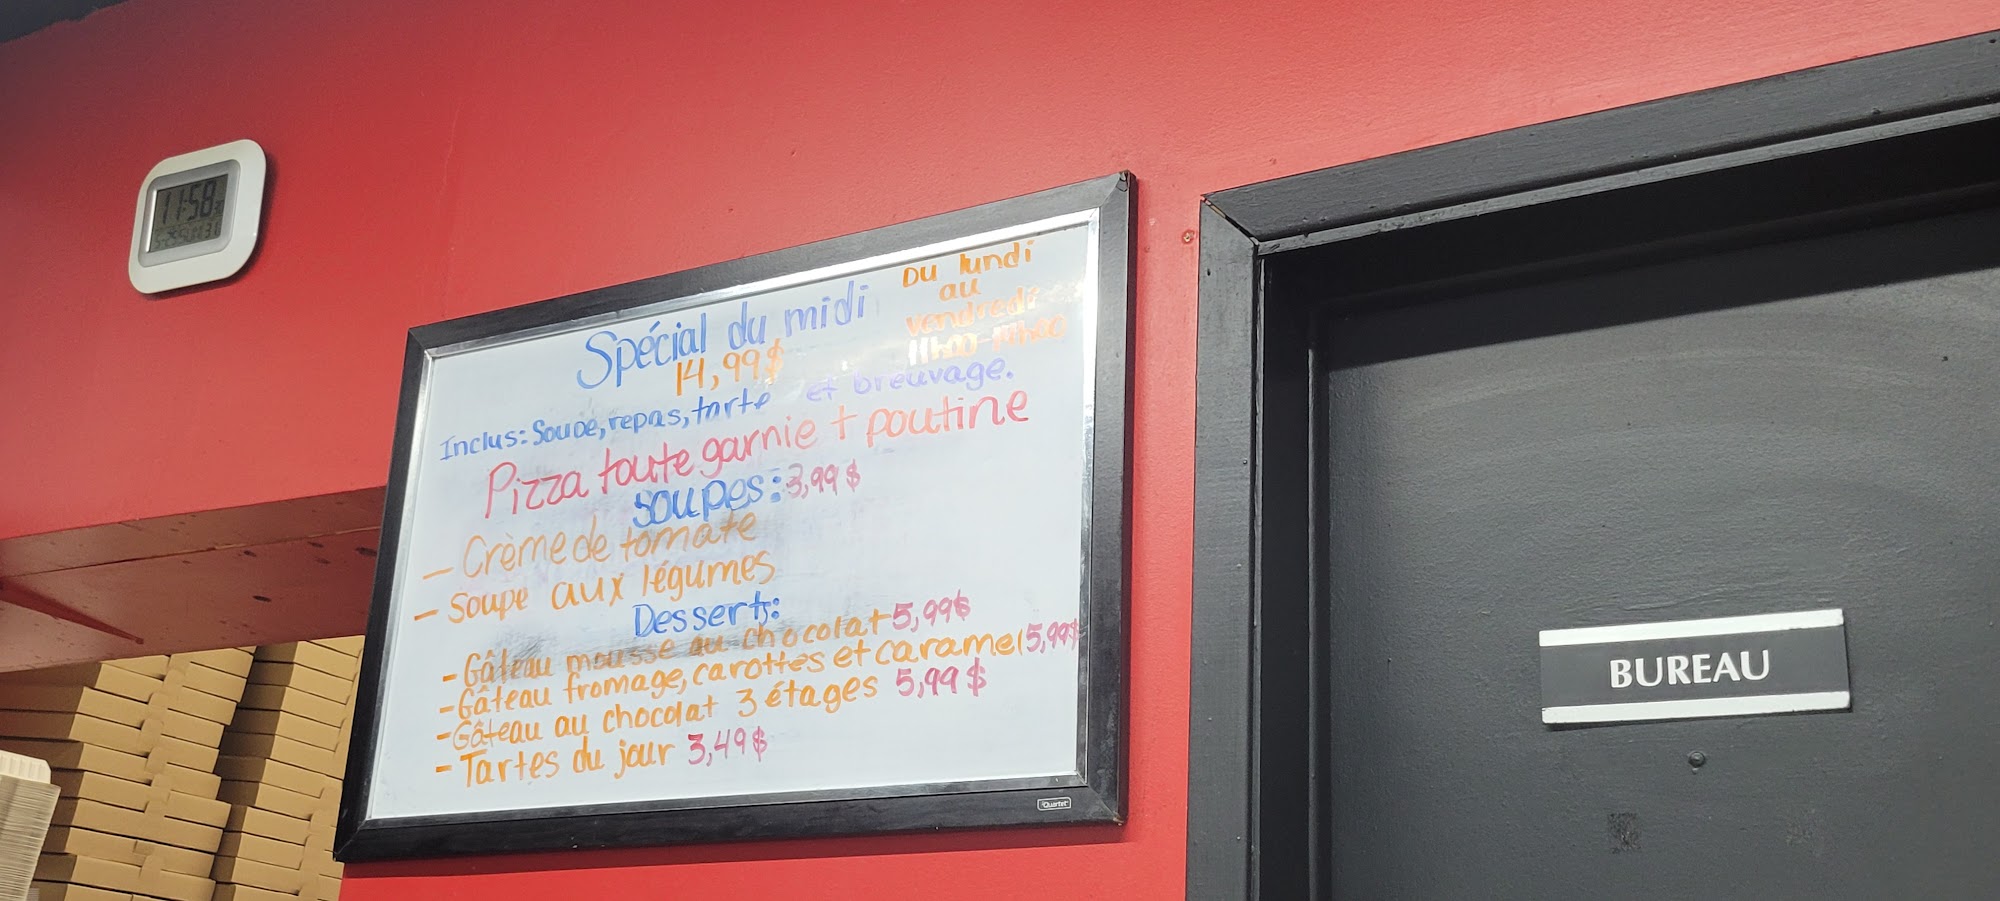 11:58
Spécial du midi
14,99$
Du lundi
au
vendredi
11h00-14h00
Inclus: Soupe, repas, tarte et breuvage.
Pizza toute garnie + poutine
Soupes: 3,99$
- Crème de tomate
- Soupe aux légumes
Desserts:
- Gâteau mousse au chocolat 5,99$
- Gâteau fromage, carottes et caramel 5,99$
- Gâteau au chocolat 3 étages 5,99$
- Tartes du jour 3,49$
Quartet
BUREAU